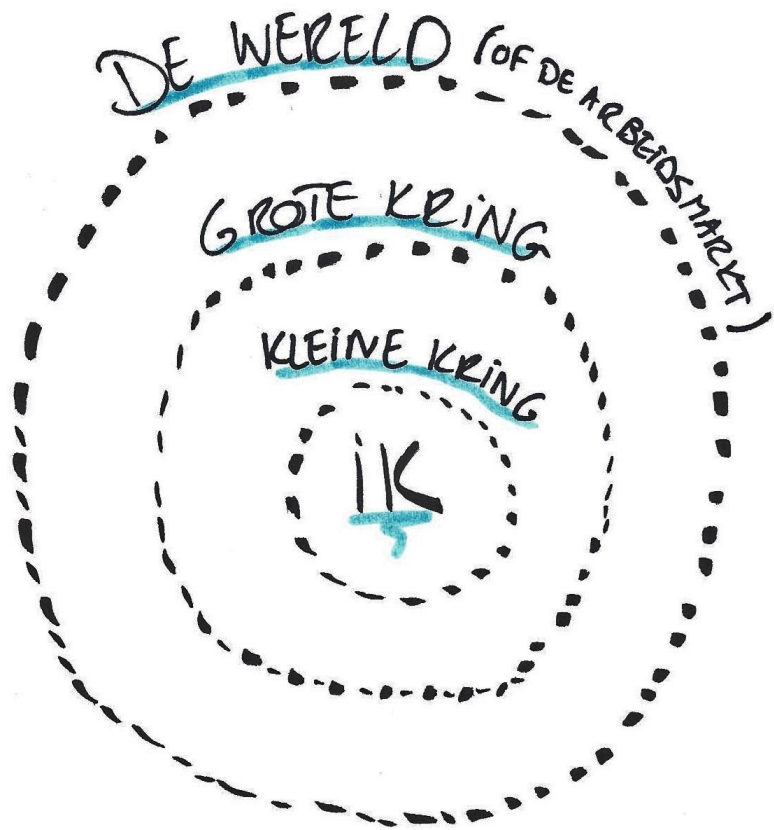 DE WERELD (OF DE ARBEIDSMARKT)
GROTE KRING
KLEINE KRING
IK